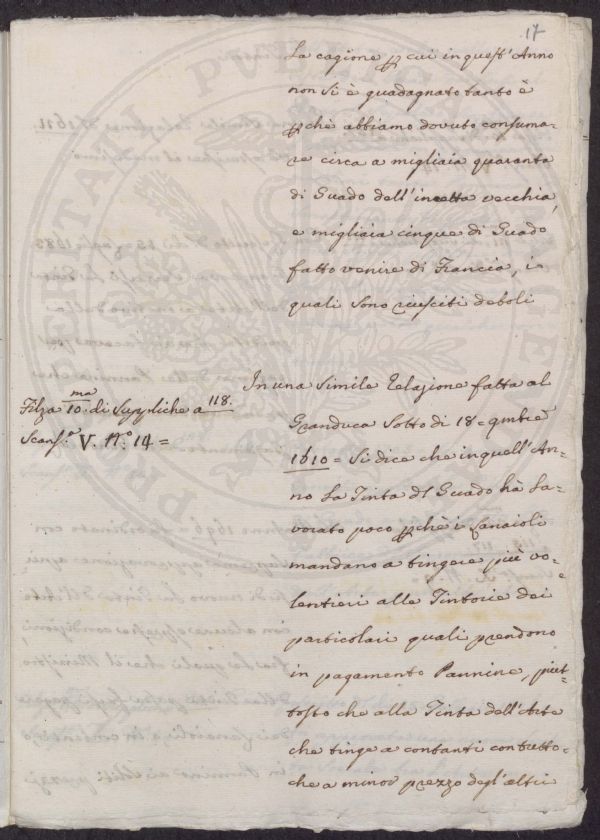 17
La cagione p cui in quest' Anno
non si è guadagnato tanto è
pchè abbiamo dovuto consuma=
re circa a migliaia quaranta
di Guado dell'incetta vecchia,
e migliaia cinque di Guado
fatto venire di Francia, i
quali sono riusciti deboli
In una simile Relazione fatta al
Filza 10.ma di Suppliche a 118.
Scanf.o V. N.o 14 =
Granduca Sotto di 18 = 9mbre
1610 = Si dice che in quell'An=
no La Tinta dl Guado hà La=
vorato poco pchè i Lanaioli
mandano a tingere più vo=
lentieri alle Tintorie dei
particolari quali prendono
in pagamento Pannine, piut=
tosto che alla Tinta dell'Arte
che tinge a contanti con tutto=
che a minor prezzo degl'altri